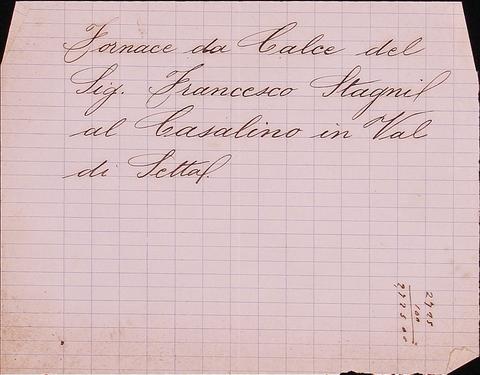 Fornace da Calce del
Sig. Francesco Stagni
al Casalino in Val
di Setta.
2795
100